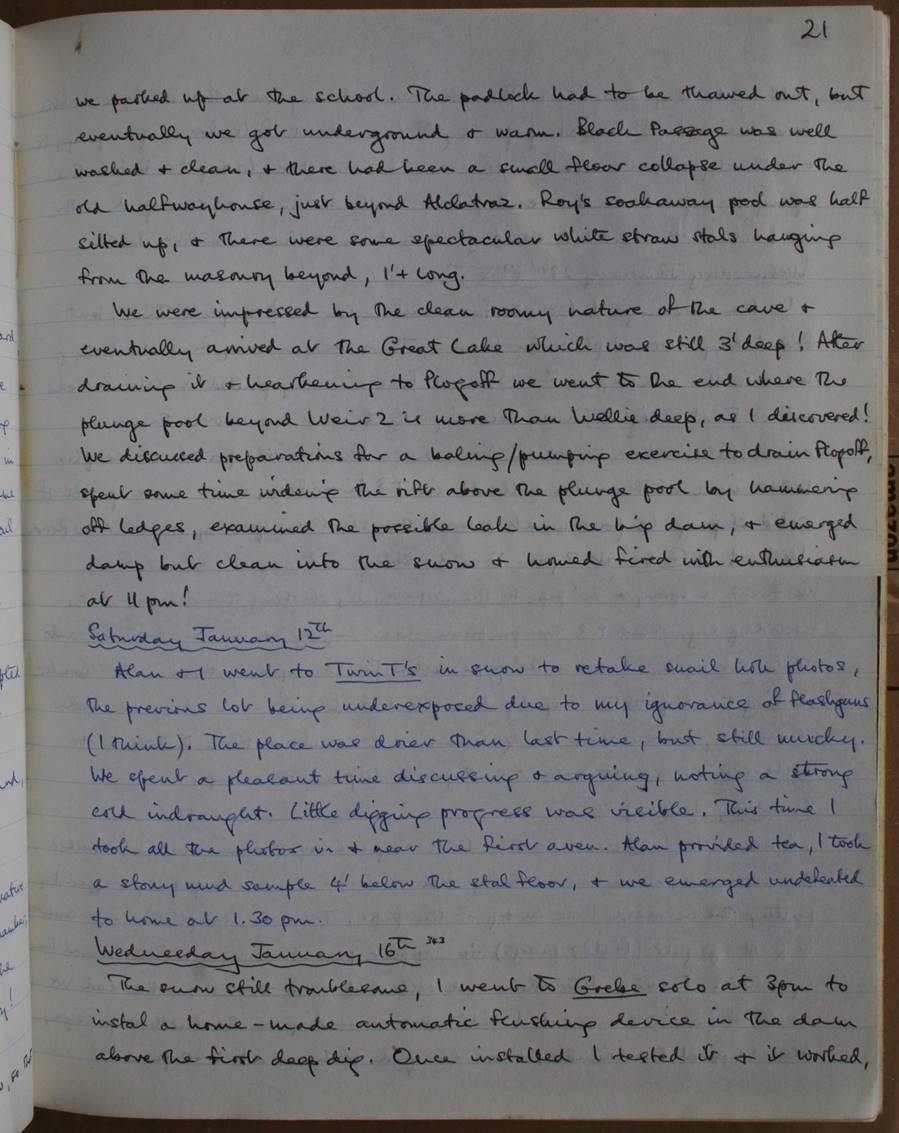 21
we parked up at the school. The padlock had to be thawed out, but
eventually we got underground & warm. Black Passage was well
washed & clean, & there had been a small floor collapse under the
old halfwayhouse, just beyond Aldatraz. Roy's soakaway pool was half
silted up, & there were some spectacular white straw stals hanging
from the masonry beyond, 1'+ long.
We were impressed by the clean roomy nature of the cave &
eventually arrived at the Great Lake which was still 3' deep! After
draining it & hearkening to Plopoff we went to the end where the
plunge pool beyond Weir 2 is more than Wellie deep, as I discovered!
We discussed preparations for a baling/pumping exercise to drain Plopoff,
spent some time widening the rift above the plunge pool by hammering
off ledges, examined the possible leak in the big dam, & emerged
damp but clean into the snow & homed fired with enthusiasm
at 11 pm!
Saturday January 12th
Alan & I went to Twin T's in snow to retake snail hole photos,
the previous lot being underexposed due to my ignorance of flashguns
(I think). The place was drier than last time, but still mucky.
We spent a pleasant time discussing & arguing, noting a strong
cold indraught. Little digging progress was visible. This time I
took all the photos in & near the First aven. Alan provided tea, I took
a stony mud sample 4' below the stal floor, & we emerged undefeated
to home at 1.30 pm.
Wednesday January 16th 343
The snow still troublesome, I went to Grebe solo at 3pm to
instal a home-made automatic flushing device in the dam
above the first deep dig. Once installed I tested it & it worked,